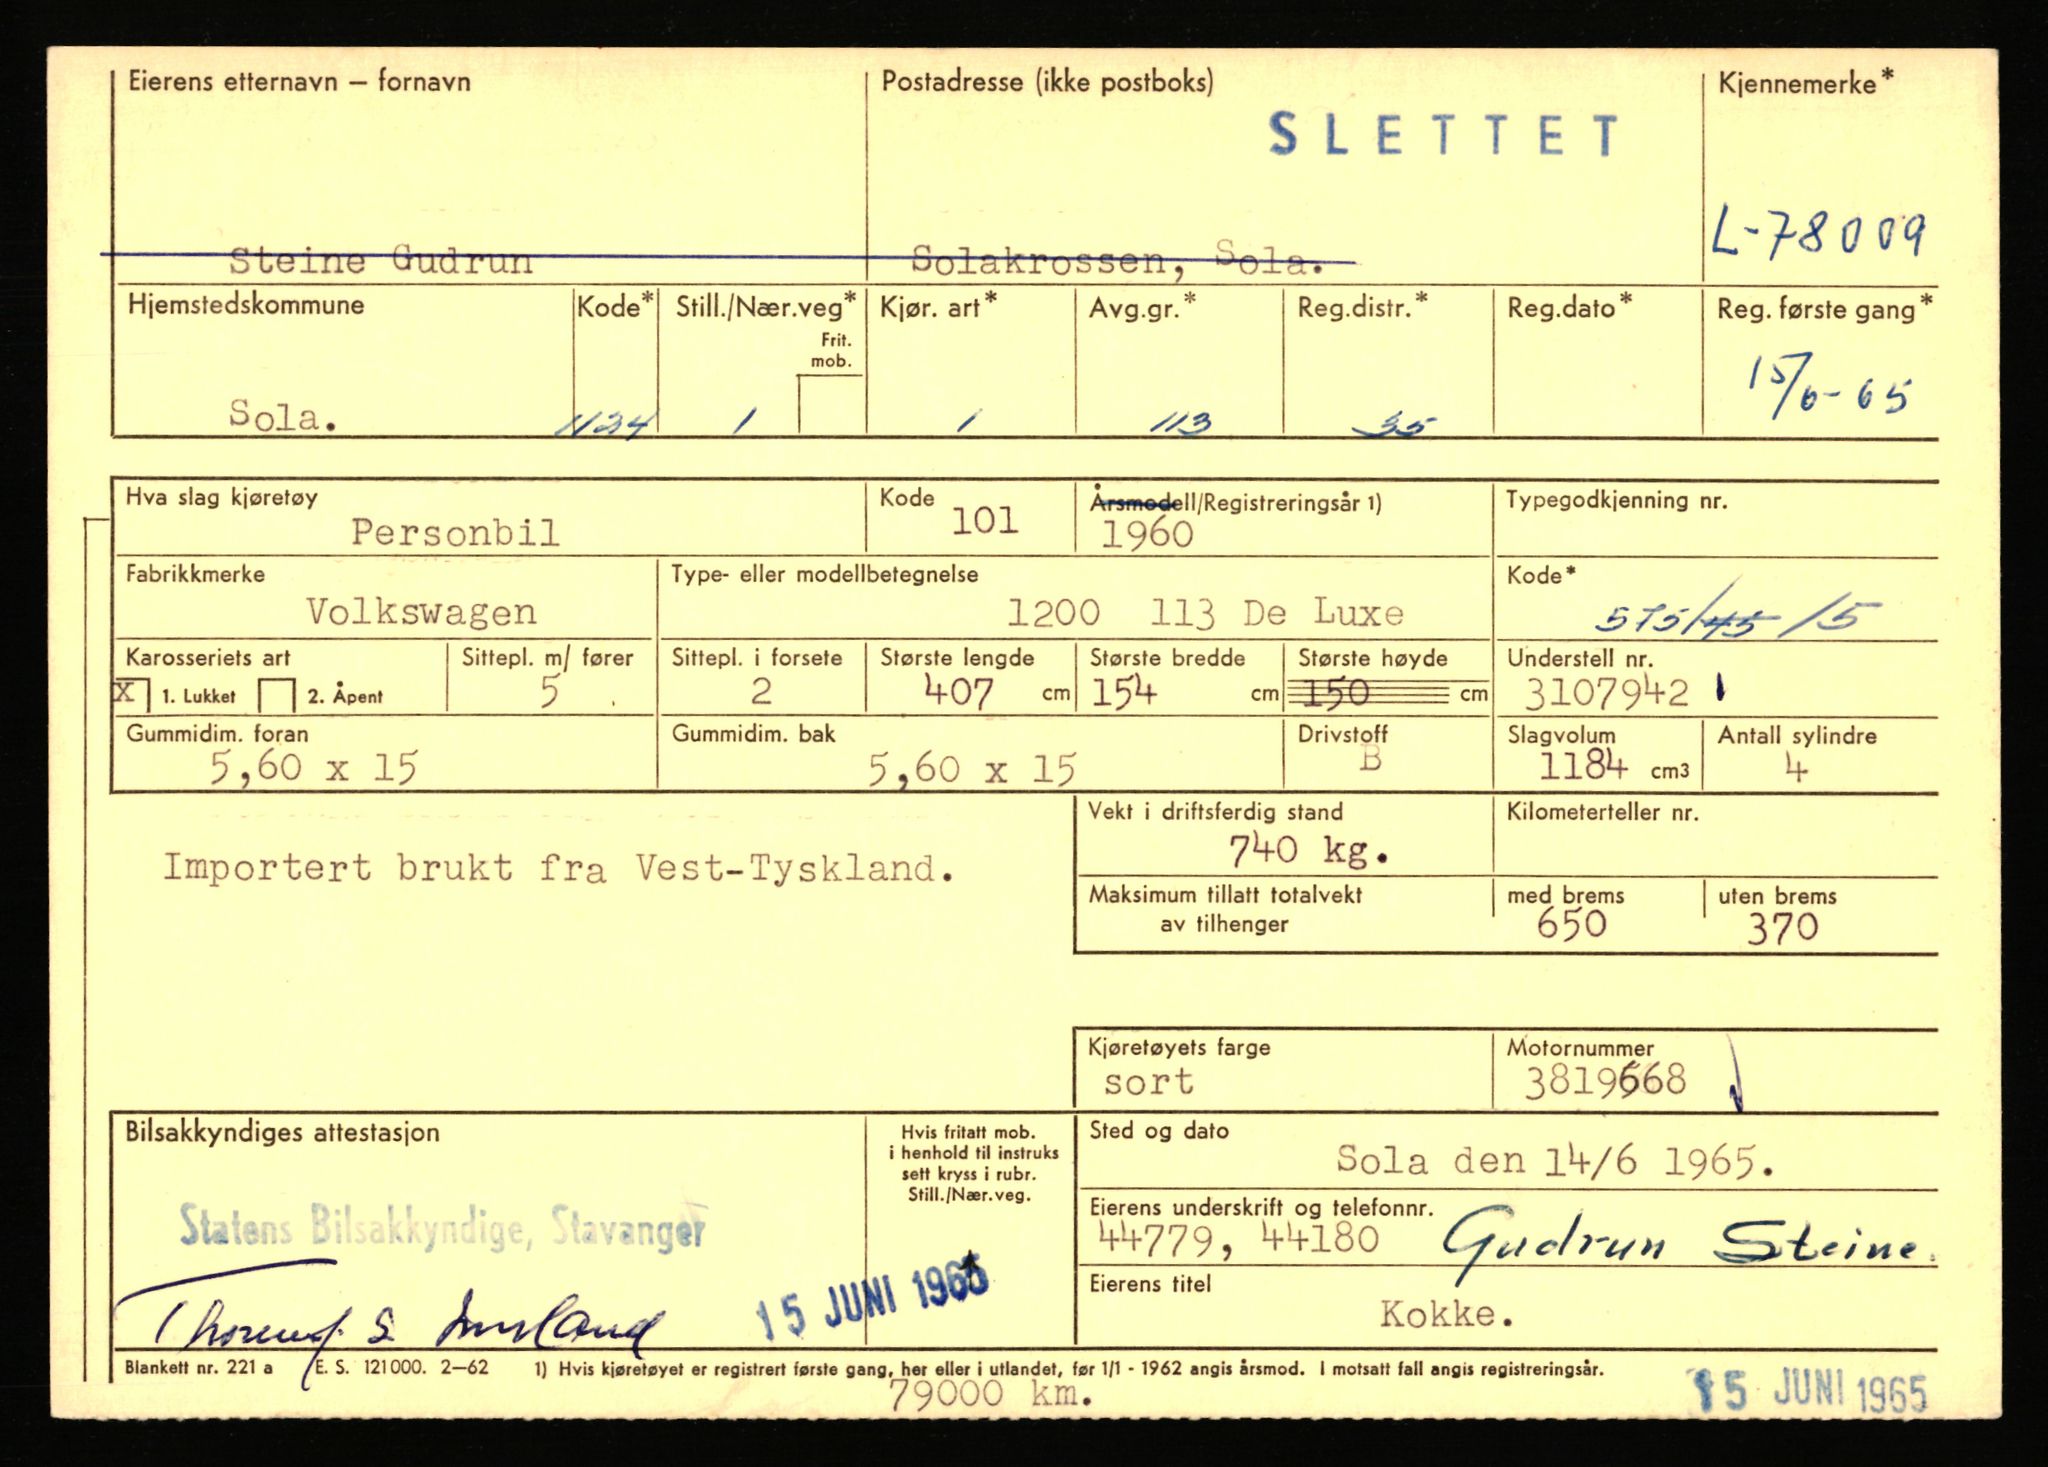 Eierens etternavn – fornavn Postadresse (ikke postboks) Kjennemerke*
SLETTET
L-78009
Steine Gudrun Solakrossen, Sola.
Hjemstedskommune Kode* Still./Nær.veg* Kjør. art* Avg.gr.* Reg.distr.* Reg.dato* Reg. første gang*
Frit.
mob.
15/6-65
Sola. 1124 1 1 113 35
Hva slag kjøretøy Kode Årsmodell/Registreringsår 1) Typegodkjenning nr.
Personbil 101 1960
Fabrikkmerke Type- eller modellbetegnelse Kode*
Volkswagen 1200 113 De Luxe 575/45/5
Karosseriets art Sittepl. m/ fører Sittepl. i forsete Største lengde Største bredde Største høyde Understell nr.
X 1. Lukket 2. Åpent 5 2 407 cm 154 cm 150 cm 3107942
Gummidim. foran Gummidim. bak Drivstoff Slagvolum Antall sylindre
5,60 x 15 5,60 x 15 B 1184 cm3 4
Vekt i driftsferdig stand Kilometerteller nr.
740 kg.
Importert brukt fra Vest-Tyskland.
Maksimum tillatt totalvekt med brems uten brems
av tilhenger 650 370
Kjøretøyets farge Motornummer
sort 3819668
Bilsakkyndiges attestasjon Hvis fritatt mob. Sted og dato
i henhold til instruks
sett kryss i rubr. Sola den 14/6 1965.
Still./Nær.veg.
Eierens underskrift og telefonnr.
Statens Bilsakkyndige, Stavanger 44779, 44180 Gudrun Steine.
Eierens titel
15 JUNI 1965 Kokke.
Blankett nr. 221 a E. S. 121000. 2–62 1) Hvis kjøretøyet er registrert første gang, her eller i utlandet, før 1/1 - 1962 angis årsmod. I motsatt fall angis registreringsår.
79000 km. 15 JUNI 1965